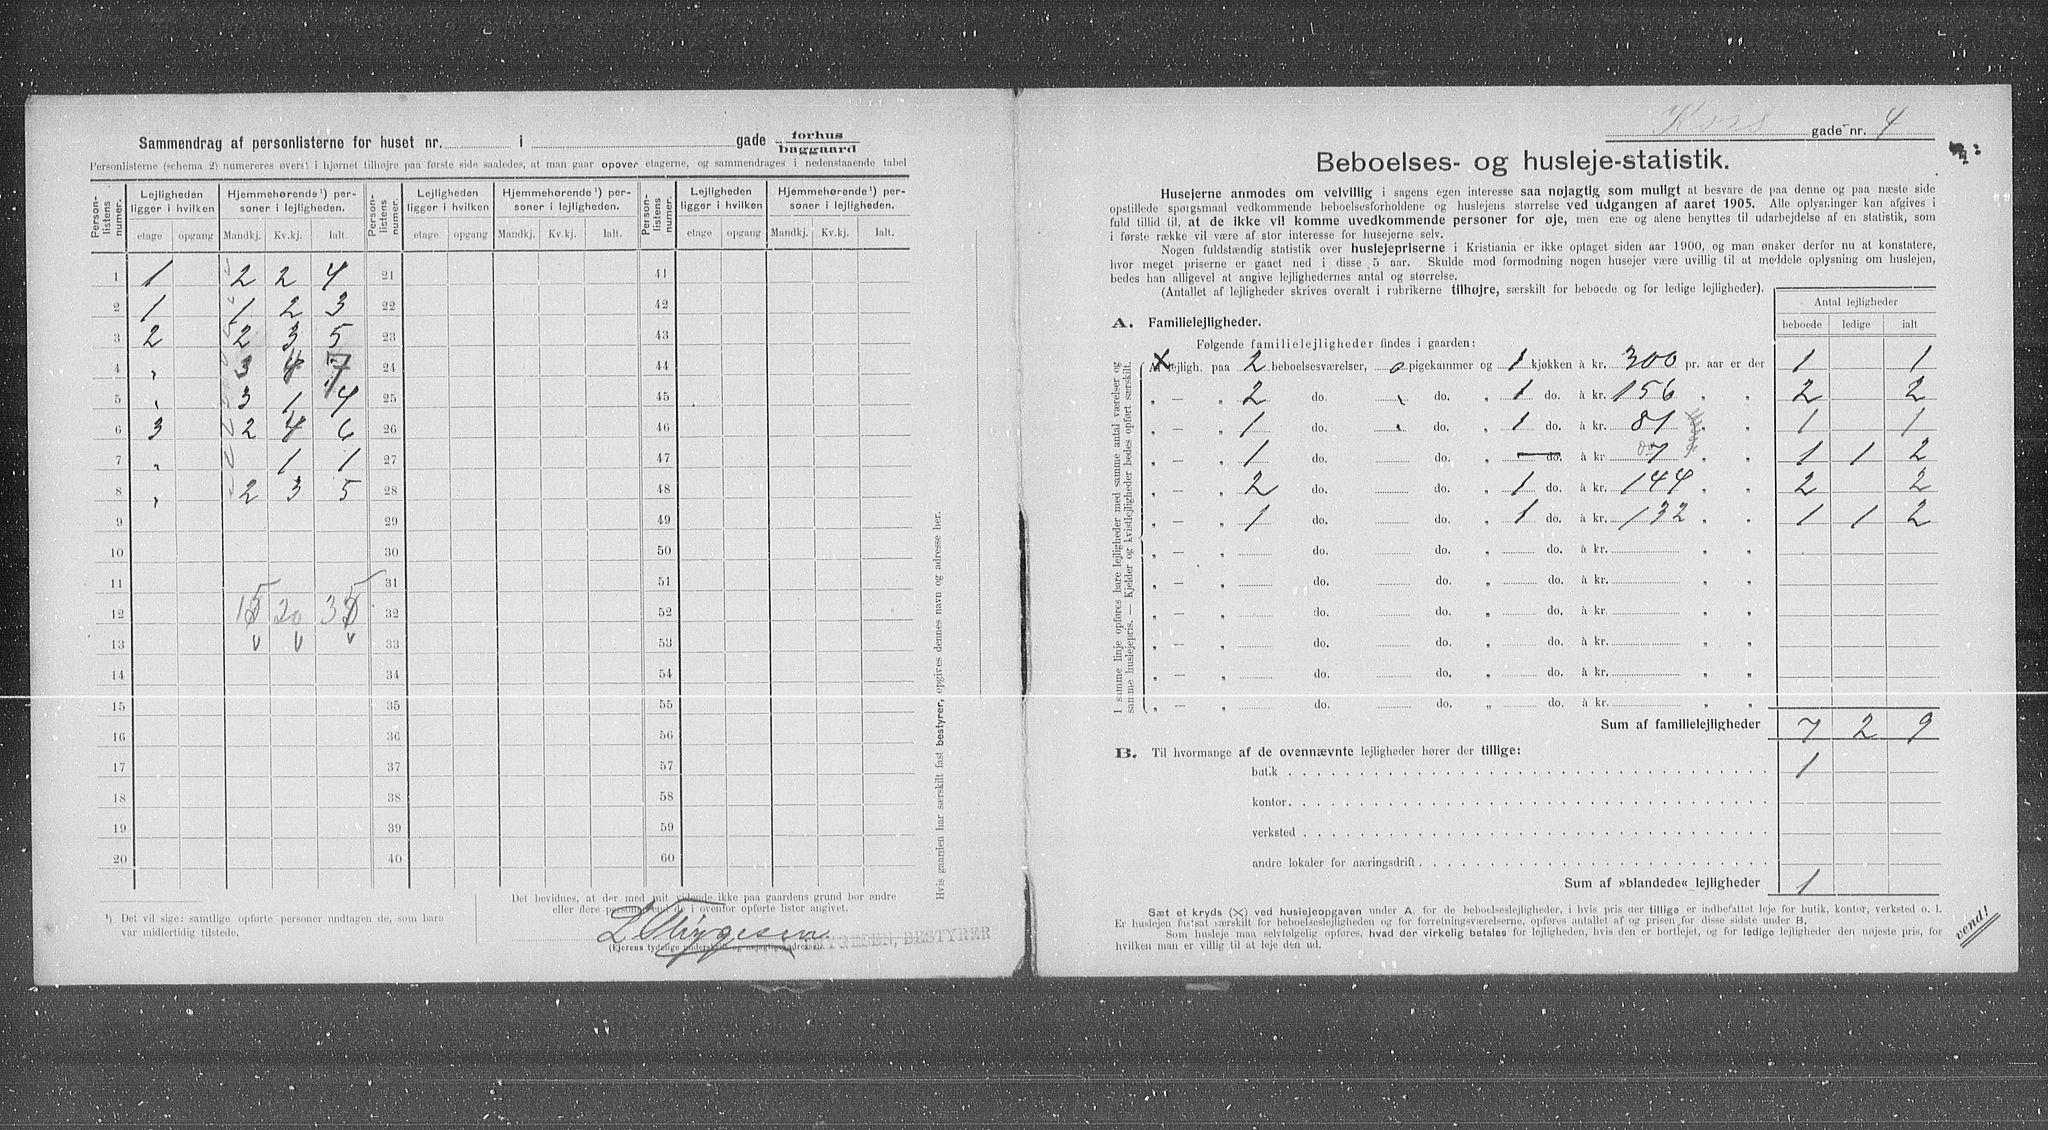 Sammendrag af personlisterne for huset nr. i gade forhus baggaard
Personlisterne (schema 2) numereres øverst i hjørnet tilhøjre paa første side saaledes, at man gaar opover etagerne, og sammendrages i nedenstaaende tabel
Personlistens numer. Lejligheden ligger i hvilken Hjemmehørende¹) personer i lejligheden. Personlistens numer. Lejligheden ligger i hvilken Hjemmehørende¹) personer i lejligheden. Personlistens numer. Lejligheden ligger i hvilken Hjemmehørende¹) personer i lejligheden.
etage opgang Mandkj. Kv.kj. Ialt. etage opgang Mandkj. Kv.kj. Ialt. etage opgang Mandkj. Kv.kj. Ialt.
1 1 2 2 4 21 41
2 1 1 2 3 22 42
3 2 2 3 5 23 43
4 „ 3 4 7 24 44
5 „ 3 1 4 25 45
6 3 2 4 6 26 46
7 „ 1 1 27 47
8 „ 2 3 5 28 48
9 29 49
10 30 50
11 31 51
12 15 20 35 32 52
13 33 53
14 34 54
15 35 55
16 36 56
17 37 57
18 38 58
19 39 59
20 40 60
¹) Det vil sige: samtlige opførte personer undtagen de, som bare
var midlertidig tilstede.
Det bevidnes, at der med mit vidende ikke paa gaardens grund bor andre
eller flere personer end de i ovenfor opførte lister angivet.
L. Thygesen
THYGESEN, BESTYRER
(Ejerens tydelige underskrift og nøjagtige adresse).
Hvis gaarden har særskilt fast bestyrer, opgives dennes navn og adresse her.
Kors gade nr. 4
Beboelses- og husleje-statistik.
Husejerne anmodes om velvillig i sagens egen interesse saa nøjagtig som muligt at besvare de paa denne og paa næste side
opstillede spørgsmaal vedkommende beboelsesforholdene og huslejens størrelse ved udgangen af aaret 1905. Alle oplysninger kan afgives i
fuld tillid til, at de ikke vil komme uvedkommende personer for øje, men ene og alene benyttes til udarbejdelse af en statistik, som
i første række vil være af stor interesse for husejerne selv.
Nogen fuldstændig statistik over huslejepriserne i Kristiania er ikke optaget siden aar 1900, og man ønsker derfor nu at konstatere,
hvor meget priserne er gaaet ned i disse 5 aar. Skulde mod formodning nogen husejer være uvillig til at meddele oplysning om huslejen,
bedes han alligevel at angive lejlighedernes antal og størrelse.
(Antallet af lejligheder skrives overalt i rubrikerne tilhøjre, særskilt for beboede og for ledige lejligheder).
Antal lejligheder
beboede ledige ialt
A. Familielejligheder.
Følgende familielejligheder findes i gaarden:
I samme linje opføres bare lejligheder med samme antal værelser og
samme huslejepris. — Kjelder og kvistlejligheder bedes opført særskilt.
X Af lejligh. paa 2 beboelsesværelser, 0 pigekammer og 1 kjøkken à kr. 300 pr. aar er der 1 1
„ — „ 2 do. „ do. „ 1 do. à kr. 156 „ „ 2 2
„ — „ 1 do. „ do. „ 1 do. à kr. 81 „ „ 1 1
„ — „ 1 do. do. „ do. à kr. „ „ 1 1 2
„ — „ 2 do. do. „ 1 do. à kr. 144 „ „ 2 2
„ — „ 1 do. do. „ 1 do. à kr. 132 „ „ 1 1 2
„ — „ do. do. „ do. à kr. „ „
„ — „ do. do. „ do. à kr. „ „
„ — „ do. do. „ do. à kr. „ „
„ — „ do. do. „ do. à kr. „ „
„ — „ do. do. „ do. à kr. „ „
„ — „ do. do. „ do. à kr. „ „
Sum af familielejligheder 7 2 9
B. Til hvormange af de ovennævnte lejligheder hører der tillige:
butik 1
kontor.
verksted
andre lokaler for næringsdrift
Sum af »blandede« lejligheder 1
Sæt et kryds (X) ved huslejeopgaven under A. for de beboelseslejligheder, i hvis pris der tillige er indbefattet leje for butik, kontor, verksted o. l.
Er huslejen fastsat særskilt for beboelseslejligheden og for forretningsværelserne, opføres antallet af og prisen for disse sidste under B.
Som husleje maa selvfølgelig opføres, hvad der virkelig betales for lejligheden, hvis den er bortlejet, og for ledige lejligheder den nøjeste pris, for
hvilken man er villig til at leje den ud.
vend!